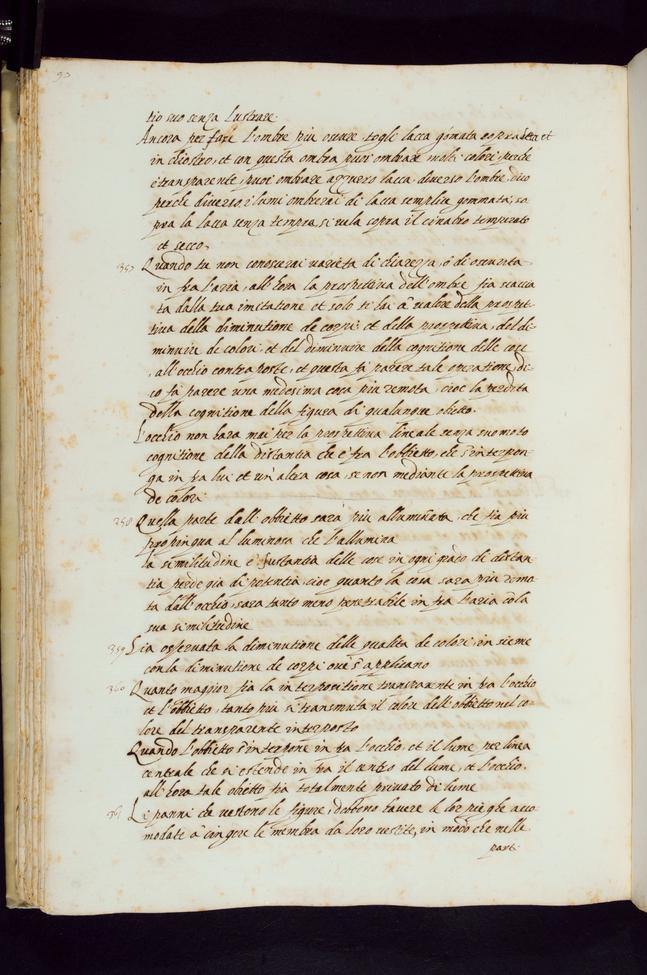 90
tio suo senza lustrare.
Ancora per fare l'ombre piu oscure togli lacca gómata sopradetta et
in chiostro, et con questa ombra puoi ombrare molti colori perche
è transparente, puoi ombrare azzurro lacca, diverso l'ombre, dico
perche diverso i lumi ombrerai di lacca semplice gommata, so
pra la lacca senza tempra, si vela sopra il cinabro temperato
et secco.
357 Quando tu non conoscerai varieta di chiarezza, ò di oscurita
in fra l'aria, all'hora la prospettiva dell'ombre fia scacca
ta dalla tua imitatione et solo ti hai à valere della prospet-
tiva della diminutione de corpi, et della prospettiva, del di-
minuire de colori, et del diminuire della cognitione delle cose
, all'occhio contraposte, et questa fà parere tale
co fà parere una medesima cosa piu remota, cioe la perdita
della cognitione della figura di qualunque obietto.
L'occhio non hara mai per la prospettiva lineale senza suo moto
cognitione della distantia che è fra l'obbietto, che s'interpon-
ga in fra lui et un'altra cosa, se non mediante la prospettiva
de colori
358 Quella parte dall'obbietto sara piu alluminata, che fia piu
propinqua al luminoso che l'allumina
la similitudine è sustantia delle cose in ogni grado di distan-
tia perde gia di potentia, cioe quanto la cosa sara piu remo
ta dall'occhio, sara tanto meno penetrabile in fra l'aria cō la
sua similitudine
359 Sia osservata la diminutione delle qualita de colori, in sieme
con la diminutione de corpi ove s'applicano
360 Quanto maggior fia la interpositione transparente in fra l'occhio
et l'obbietto, tanto piu si transmuta il colore dell'obbietto nel co-
lore del transparente interposto
Quando l'obbietto s'interpone in fra l'occhio, et il lume per linea
centrale che si estende in fra il centro del lume, et l'occhio.
all'hora tale obietto fia totalmente privato di lume
361 Li panni che vestono le figure, debbono havere le lor pieghe acco
modate à cingere le membra da loro vestite, in modo che nelle
part.